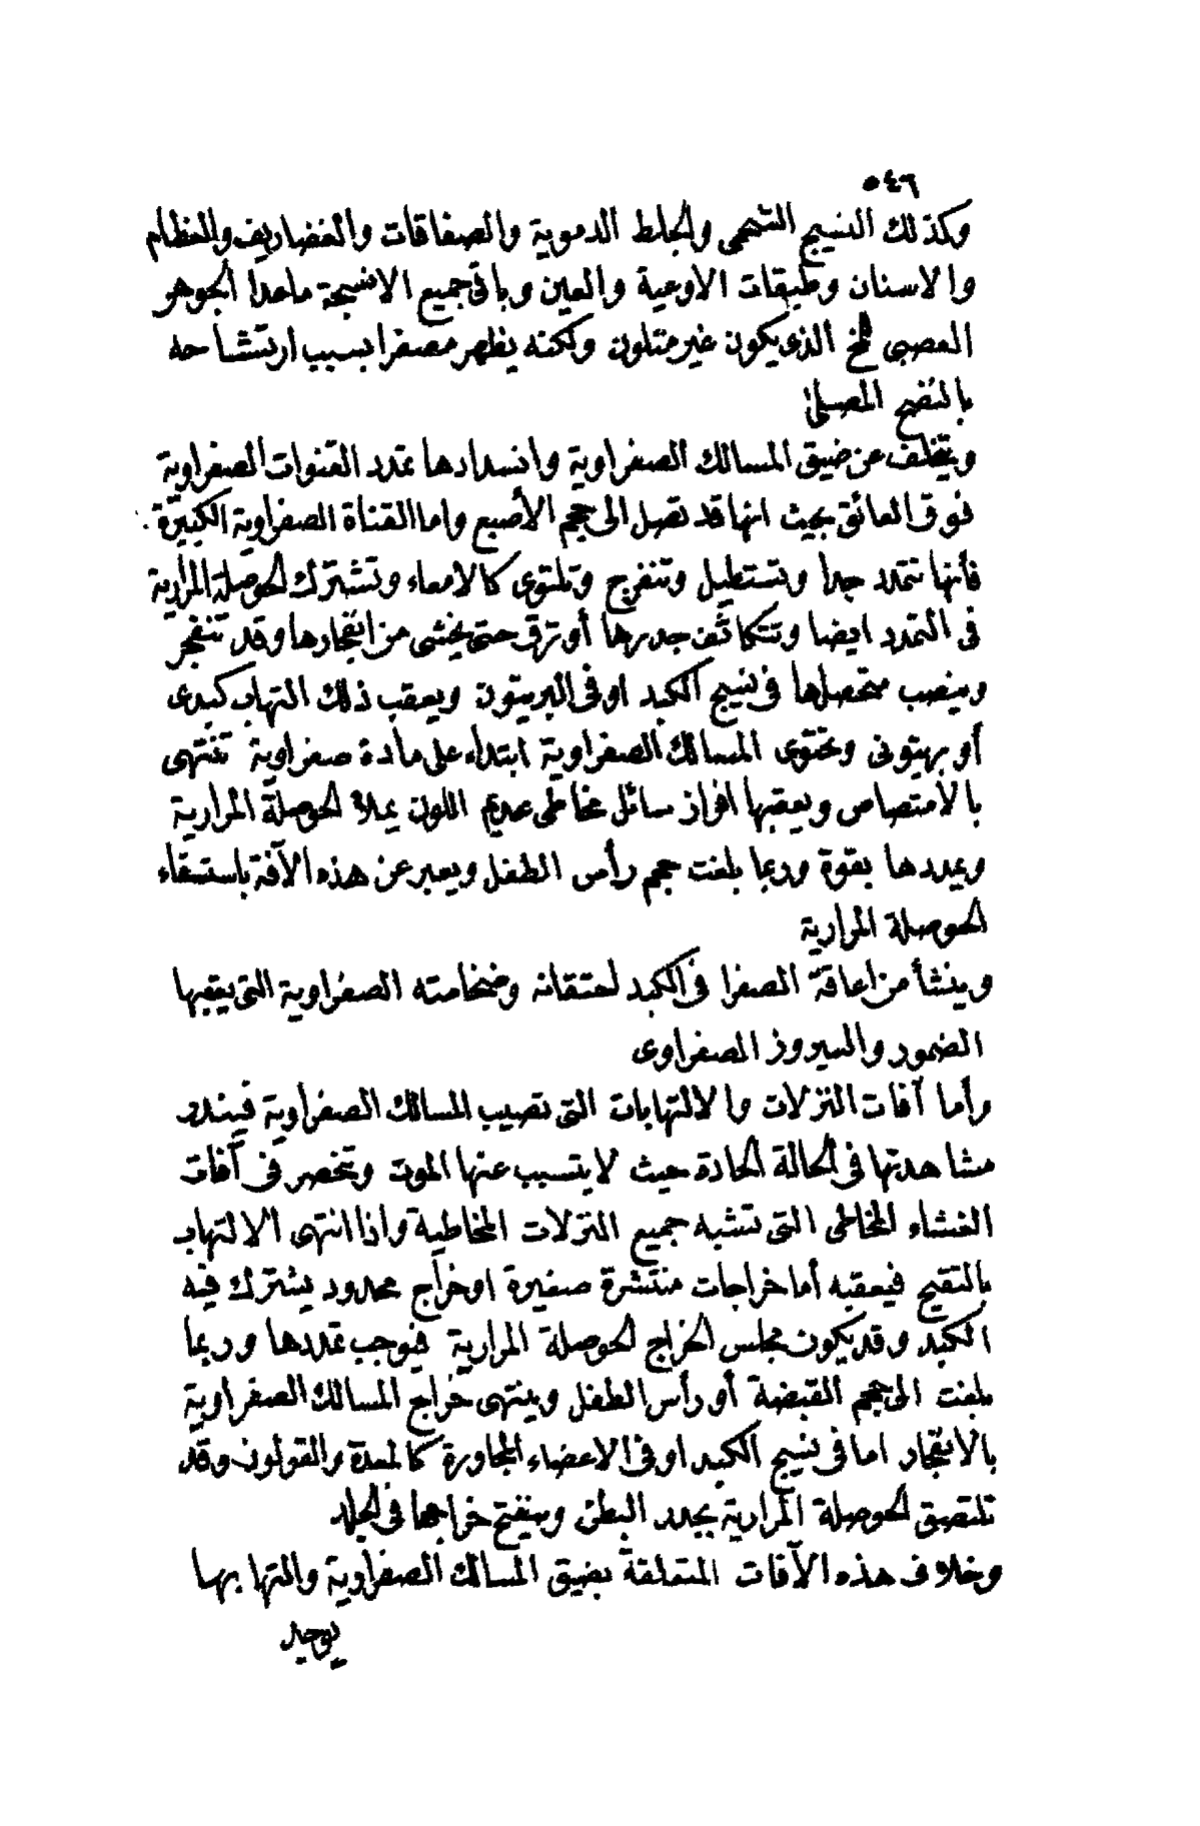 ٥٤٦
وكذلك النسيج الشحمى والجلط الدموية والصفاقات والغضاريف والعظام
والاسنان وطبقات الاوعية والعين وباقى جميع الانسجة ماعدا الجوهر
العصبى للمخ الذى يكون غير متلون ولكنه يظهر مصفرا بسبب ارتشاحه
بالنضح المصلى
ويتخلف عن ضيق المسالك الصفراوية وانسدادها تمدد القنوات الصفراوية
فوق العائق بحيث انها قد تصل الى حجم الأصبع واما القناة الصفراوية الكبيرة
فأنها تتمدد جدا وتستطيل وتنفرج وتلتوى كالامعاء وتشترك الحوصلة المرارية
فى التمدد ايضا وتتكاثف جدرها أو ترق حتى يخشى من انفجارها وقد تنفجر
وينصب متحصلها فى نسيج الكبد اوفى البريتون ويعقب ذلك التهاب كبدى
أو بريتونى وتحتوى المسالك الصفراوية ابتداء على مادة صفراوية تنتهى
بالامتصاص ويعقبها افراز سائل مخاطى عديم اللون يملأ الحوصلة المرارية
ويمددها بقوة وربما بلغت حجم رأس الطفل ويعبر عن هذه الآفة باستسقاء
الحوصلة المرارية
وينشأ من اعاقة الصفرا فى الكبد احتقانه وضخامته الصفراوية التى يعقبها
الضمور والسيروز الصفراوى
وأما آفات النزلات والالتهابات التى تصيب المسالك الصفراوية فيندر
مشاهدتها فى الحالة الحادة حيث لا يتسبب عنها الموت وتنحصر فى آفات
الغشاء المخاطى التى تشبه جميع النزلات المخاطية واذا انتهى الالتهاب
بالتقيح فيعقبه أما خراجات منتشرة صغيرة اوخراج محدود يشترك فيه
الكبد وقد يكون مجلس الخراج الحوصلة المرارية فيوجب تمددها وربما
بلغت الى حجم القبضة أو رأس الطفل وينتهى خراج المسالك الصفراوية
بالانفجار اما فى نسيج الكبد اوفى الاعضاء المجاورة كالمعدة والقولون وقد
تلتصق الحوصلة المرارية بجدر البطن وينفتح خراجها فى الجلد
وخلاف هذه الآفات المتعلقة بضيق المسالك الصفراوية والتهابها
يوجد